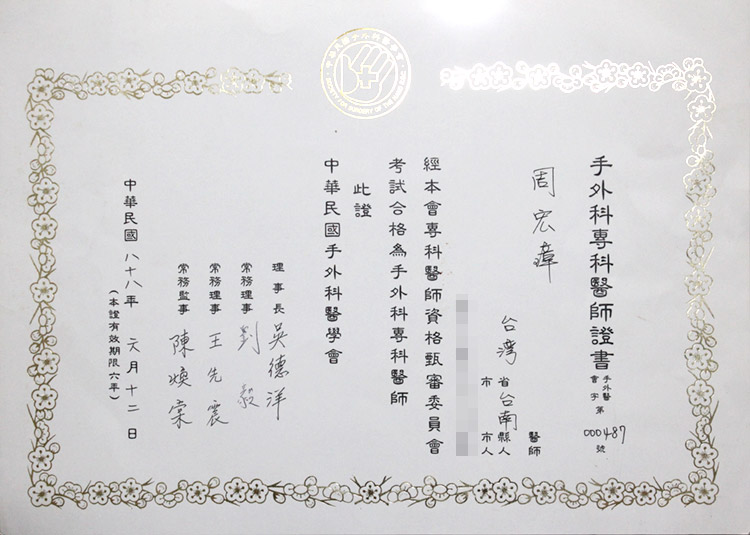 手外科專科醫師證書
手外醫會字第000487號
周宏璋 醫師
台灣省市台南縣市人
經本會專科醫師資格甄審委員會
考試合格為手外科專科醫師
此證
中華民國手外科醫學會
理事長 吳德洋
常務理事 劉毅
常務理事 王先震
常務監事 陳煥棠
中華民國八十八年 六月十二日
（本證有效期限六年）